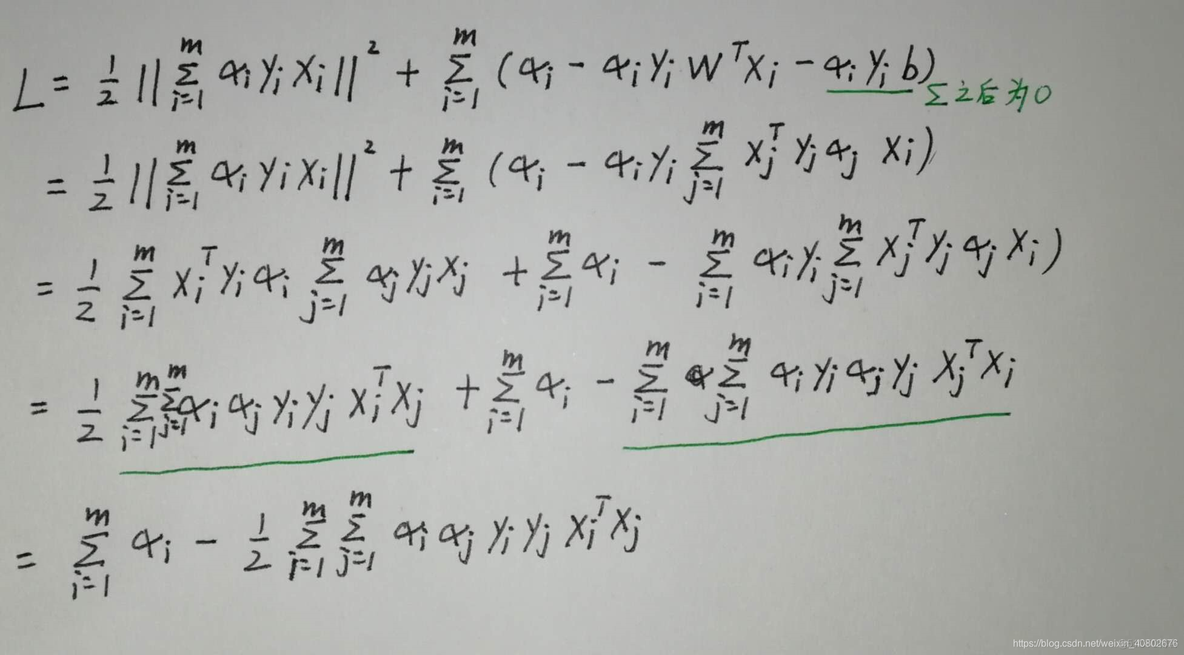 L = 1/2 ||∑_{i=1}^{m} α_i y_i x_i||² + ∑_{i=1}^{m} (α_i - α_i y_i W^T x_i - α_i y_i b) ∑之后为0
= 1/2 ||∑_{i=1}^{m} α_i y_i x_i||² + ∑_{i=1}^{m} (α_i - α_i y_i ∑_{j=1}^{m} x_j^T y_j α_j x_i)
= 1/2 ∑_{i=1}^{m} x_i^T y_i α_i ∑_{j=1}^{m} α_j y_j x_j + ∑_{i=1}^{m} α_i - ∑_{i=1}^{m} α_i y_i ∑_{j=1}^{m} x_j^T y_j α_j x_i)
= 1/2 ∑_{i=1}^{m} ∑_{j=1}^{m} α_i α_j y_i y_j x_i^T x_j + ∑_{i=1}^{m} α_i - ∑_{i=1}^{m} ∑_{j=1}^{m} α_i y_i α_j y_j x_j^T x_i
= ∑_{i=1}^{m} α_i - 1/2 ∑_{i=1}^{m} ∑_{j=1}^{m} α_i α_j y_i y_j x_i^T x_j
https://blog.csdn.net/weixin_40802676